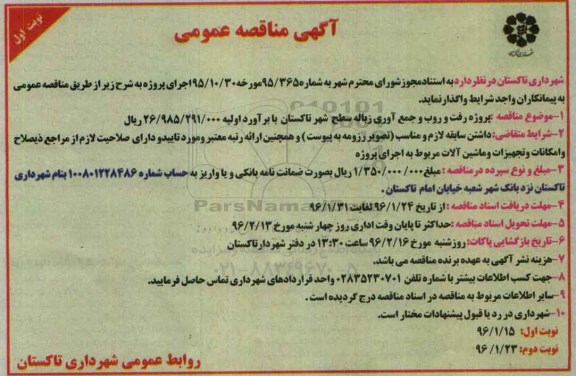 نوبت اول
آگهی مناقصه عمومی
شهرداری تاکستان
شهرداری تاکستان در نظر دارد به استناد مجوز شورای محترم شهر به شماره ۹۵/۳۶۵ مورخه ۹۵/۱۰/۳۰ اجرای پروژه به شرح زیر از طریق مناقصه عمومی
به پیمانکاران واجد شرایط واگذار نماید.
۱-موضوع مناقصه :پروژه رفت و روب و جمع آوری زباله سطح شهر تاکستان با برآورد اولیه ۲۶/۹۸۵/۲۹۱/۰۰۰ ریال
۲-شرایط متقاضی: داشتن سابقه لازم و مناسب (تصویر رزومه به پیوست) و همچنین ارائه رتبه معتبر و مورد تایید و دارای صلاحیت لازم از مراجع ذیصلاح
و امکانات و تجهیزات و ماشین آلات مربوط به اجرای پروژه
۳-مبلغ و نوع سپرده در مناقصه : مبلغ ۱/۳۵۰/۰۰۰/۰۰۰ ریال بصورت ضمانت نامه بانکی و یا واریز به حساب شماره ۱۰۰۸۰۱۲۲۸۴۸۶ بنام شهرداری
تاکستان نزد بانک شهر شعبه خیابان امام تاکستان .
۴-مهلت دریافت اسناد مناقصه : از تاریخ ۹۶/۱/۲۴ لغایت ۹۶/۱/۳۱
۵-مهلت تحویل اسناد مناقصه :حداکثر تا پایان وقت اداری روز چهار شنبه مورخ ۹۶/۲/۱۳
۶-تاریخ بازگشایی پاکات: روز شنبه مورخ ۹۶/۲/۱۶ ساعت ۱۳:۳۰ در دفتر شهردار تاکستان
۷-هزینه نشر آگهی به عهده برنده مناقصه می باشد.
۸-جهت کسب اطلاعات بیشتر با شماره تلفن ۰۲۸۳۵۲۳۰۷۰۱ واحد قراردادهای شهرداری تماس حاصل فرمایید.
۹-سایر اطلاعات مربوط به مناقصه در اسناد مناقصه درج گردیده است .
۱۰-شهرداری در رد یا قبول پیشنهادات مختار است.
نوبت اول: ۹۶/۱/۱۵
نوبت دوم: ۹۶/۱/۲۳
روابط عمومی شهرداری تاکستان